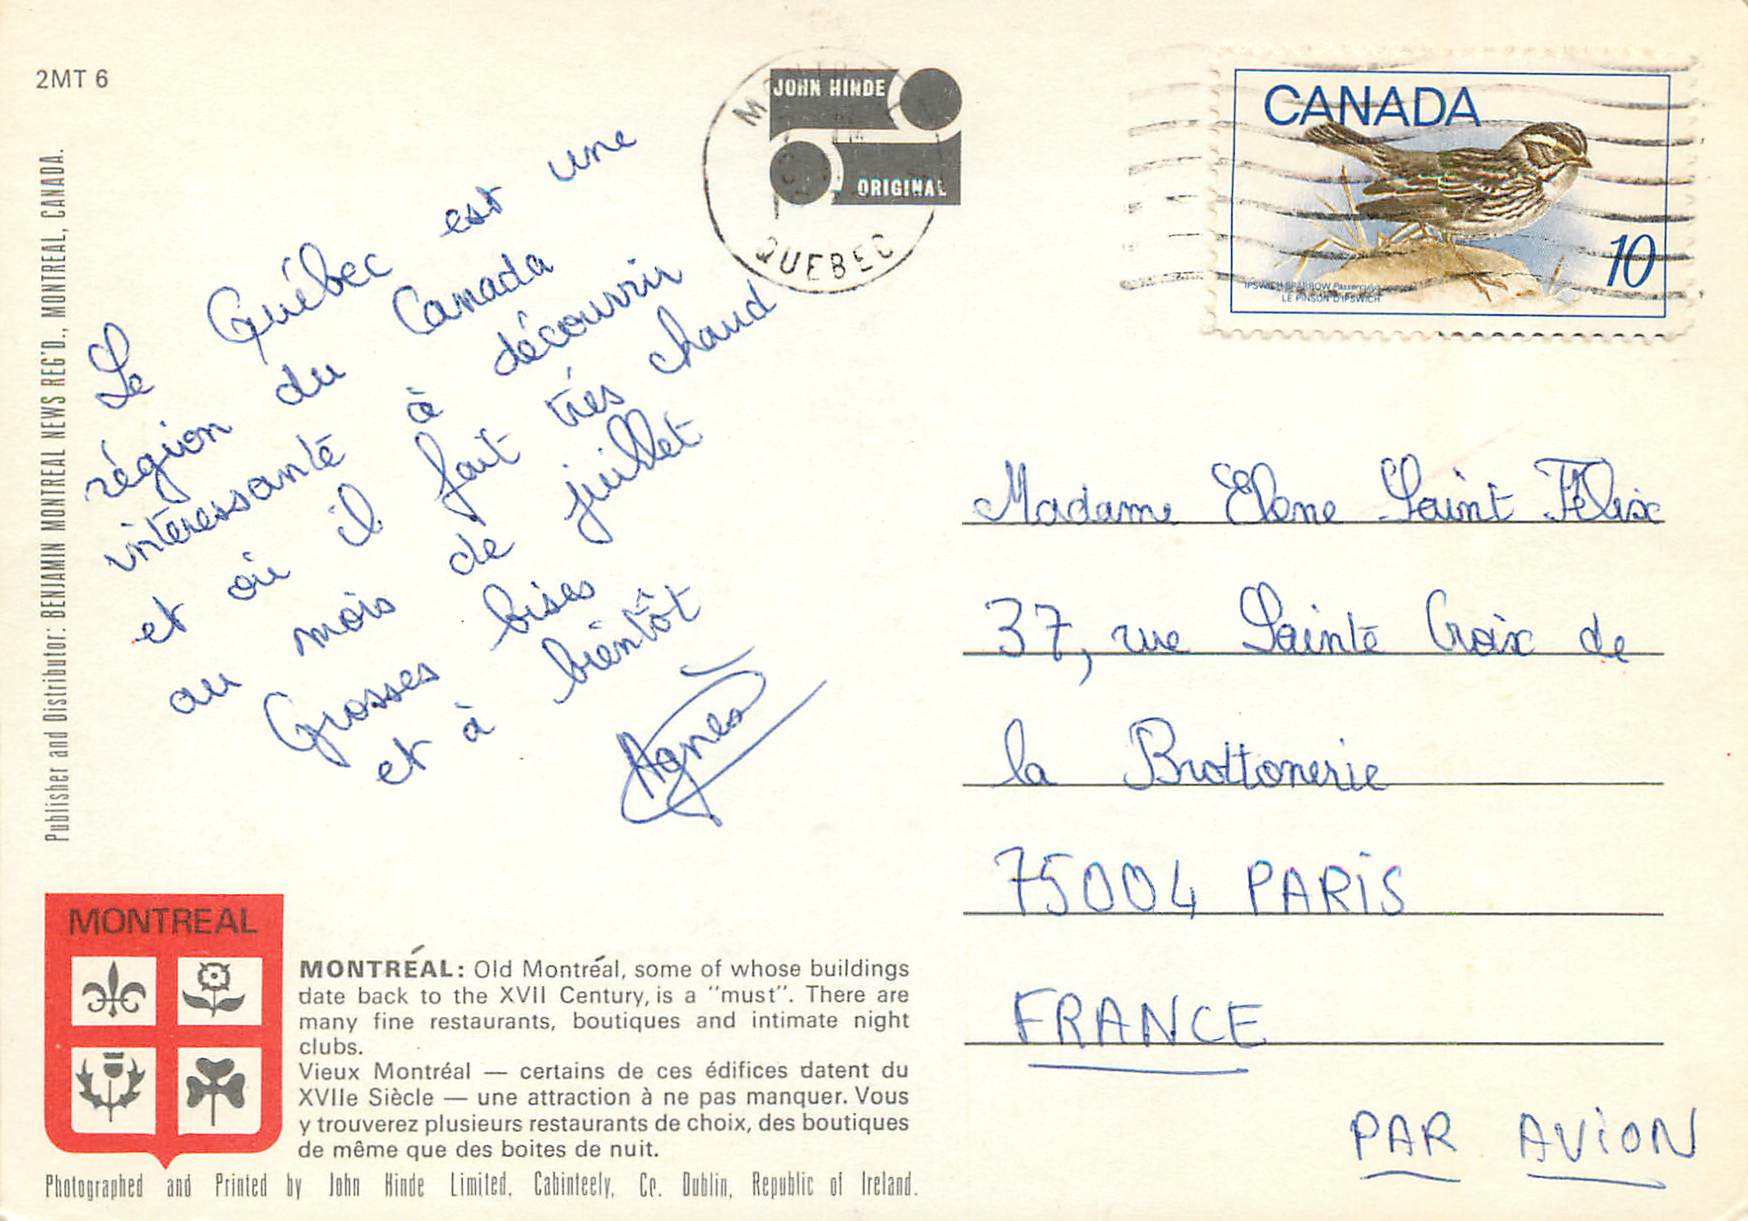 2MT 6
JOHN HINDE
ORIGINAL
QUEBEC
CANADA
10
IPSWICH SPARROW
LE PINSON D'IPSWICH
Publisher and Distributor: BENJAMIN MONTREAL NEWS REG'D., MONTREAL, CANADA.
Le Québec est une
région du Canada
intéressante à découvrir
et où il fait très chaud
au mois de juillet
Grosses bises
et à bientôt
Agnès
Madame Elene Saint Félix
37, rue Sainte Croix de
la Brottonerie
75004 PARIS
FRANCE
PAR AVION
MONTREAL
MONTRÉAL: Old Montréal, some of whose buildings
date back to the XVII Century, is a "must". There are
many fine restaurants, boutiques and intimate night
clubs.
Vieux Montréal — certains de ces édifices datent du
XVIIe Siècle — une attraction à ne pas manquer. Vous
y trouverez plusieurs restaurants de choix, des boutiques
de même que des boites de nuit.
Photographed and Printed by John Hinde Limited, Cabinteely, Co. Dublin, Republic of Ireland.